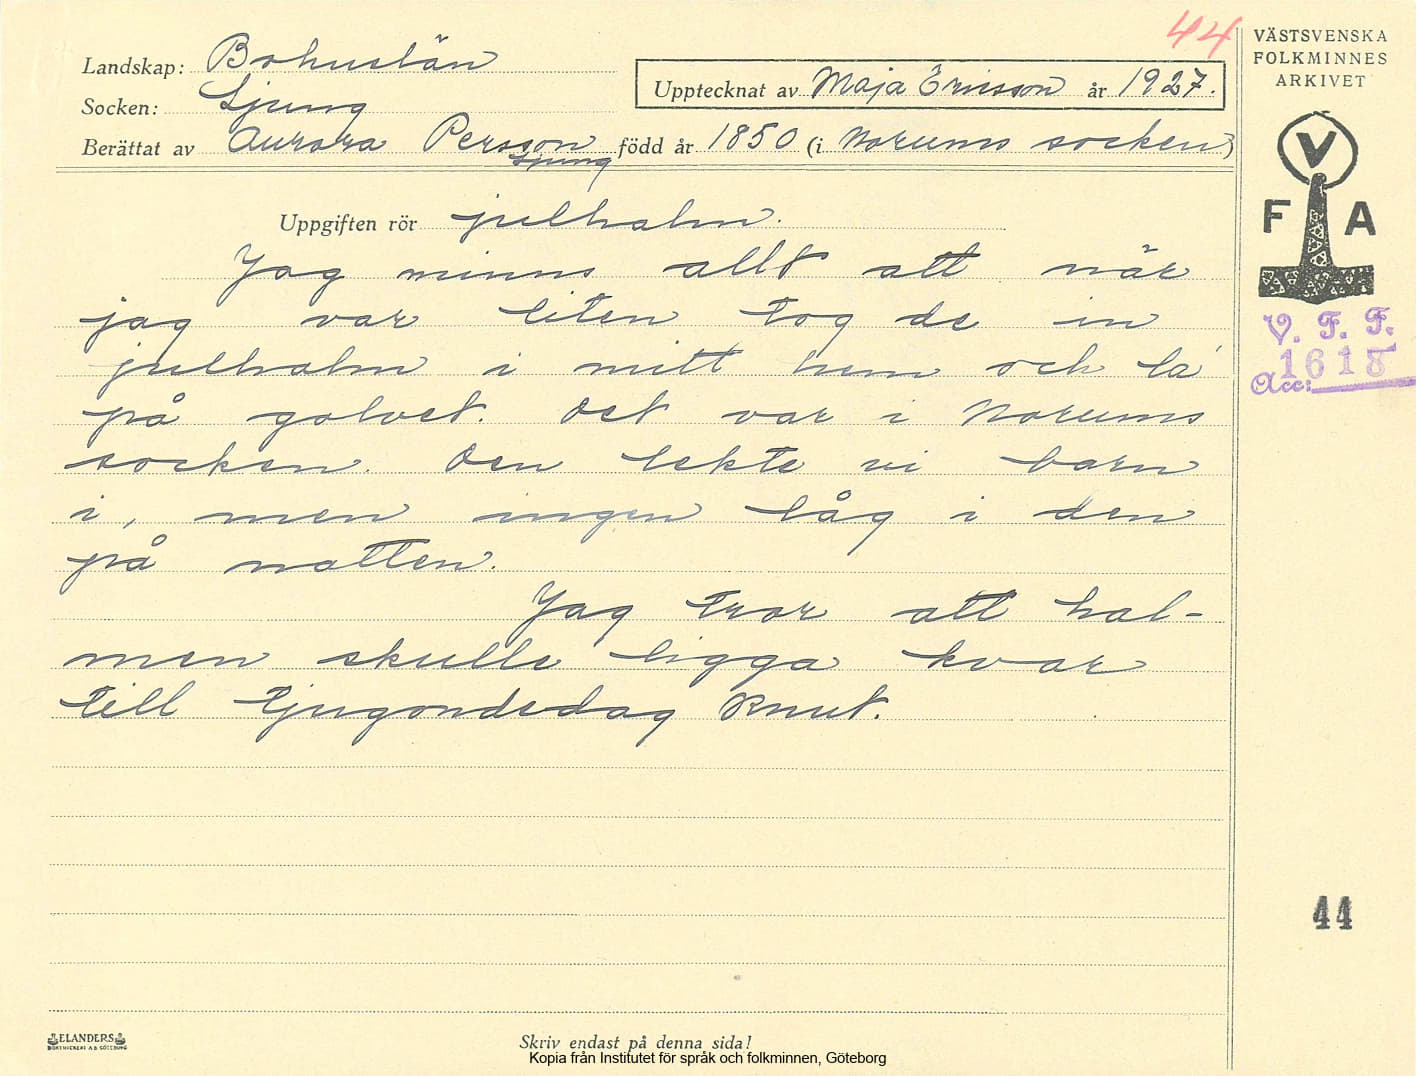 44
VÄSTSVENSKA
FOLKMINNES
ARKIVET
Landskap: Bohuslän
Upptecknat av Maja Ericsson år 1927.
Socken: Ljung
Berättat av Aurora Persson född år 1850 (i Norums socken)
Ljung
V
F A
V. F. F.
1618
Acc:
Uppgiften rör julhalm.
Jag minns allt att när
jag var liten tog de in
julhalm i mitt hem och la'
på golvet. Det var i Norums
socken. Den lekte vi barn
i, men ingen låg i den
på natten.
Jag tror att hal-
men skulle ligga kvar
till tjugondedag Knut.
44
ELANDERS
BOKTRYCKERI A.B. GÖTEBORG
Skriv endast på denna sida!
Kopia från Institutet för språk och folkminnen, Göteborg